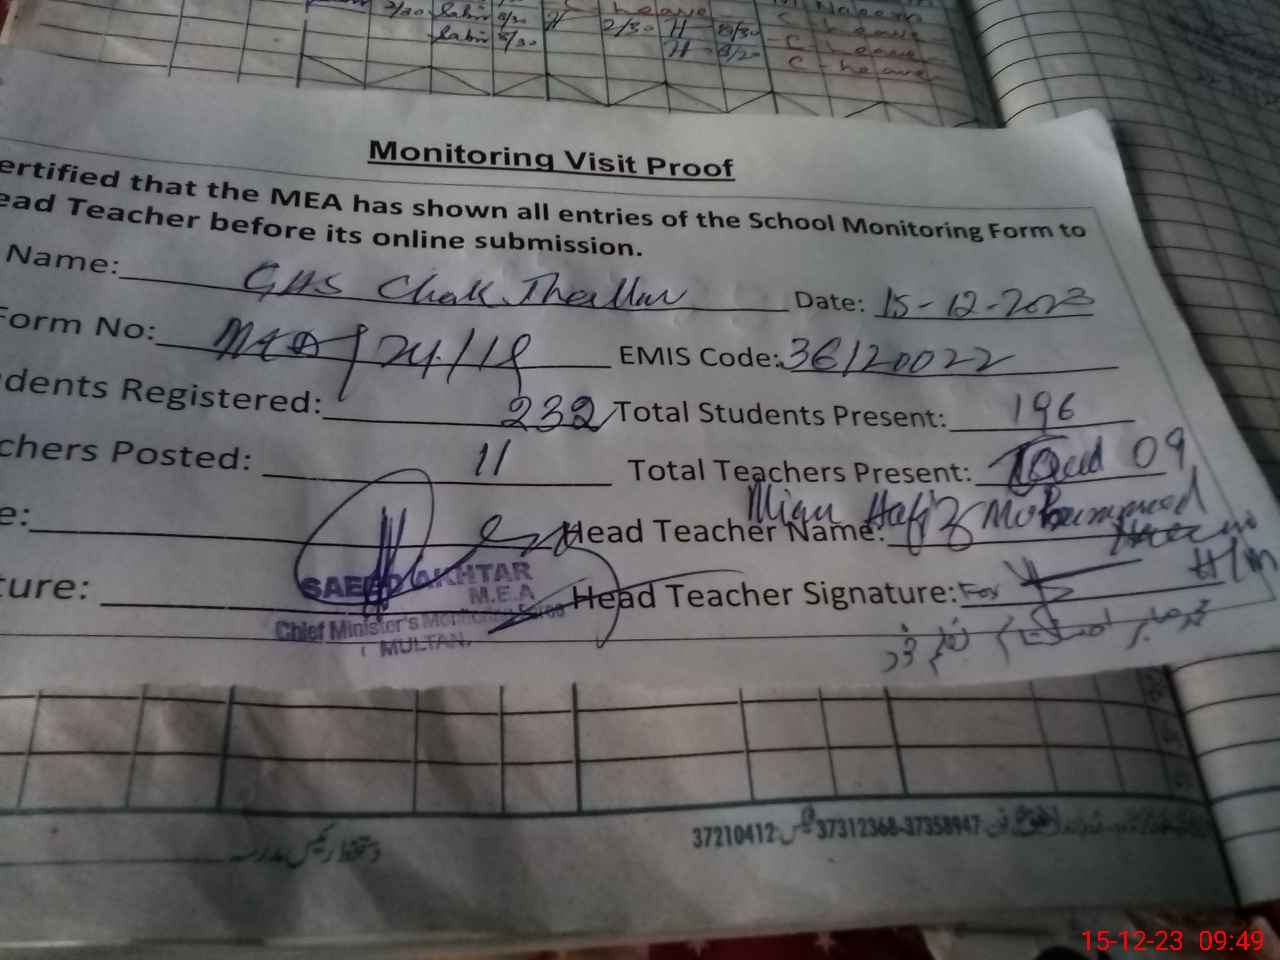 2/30 Labir 8/30 H 2/30 H 8/30 C leave
Labir 8/30 H 8/20 C leave
C leave
Monitoring Visit Proof
ertified that the MEA has shown all entries of the School Monitoring Form to
ead Teacher before its online submission.
Name: GHS Chak Date: 15-12-2023
Form No: 24/18 EMIS Code: 36120022
dents Registered: 232 Total Students Present: 196
chers Posted: 11 Total Teachers Present: 09
e: Head Teacher Name: Mian Hafiz Mohammad
ture: Head Teacher Signature: For
SAEED AKHTAR
M.E.A
Chief Minister's Monitoring Force
MULTAN.
دستخط رئیس مدرسہ
37210412 فیکس 37312368-37358947
15-12-23 09:49